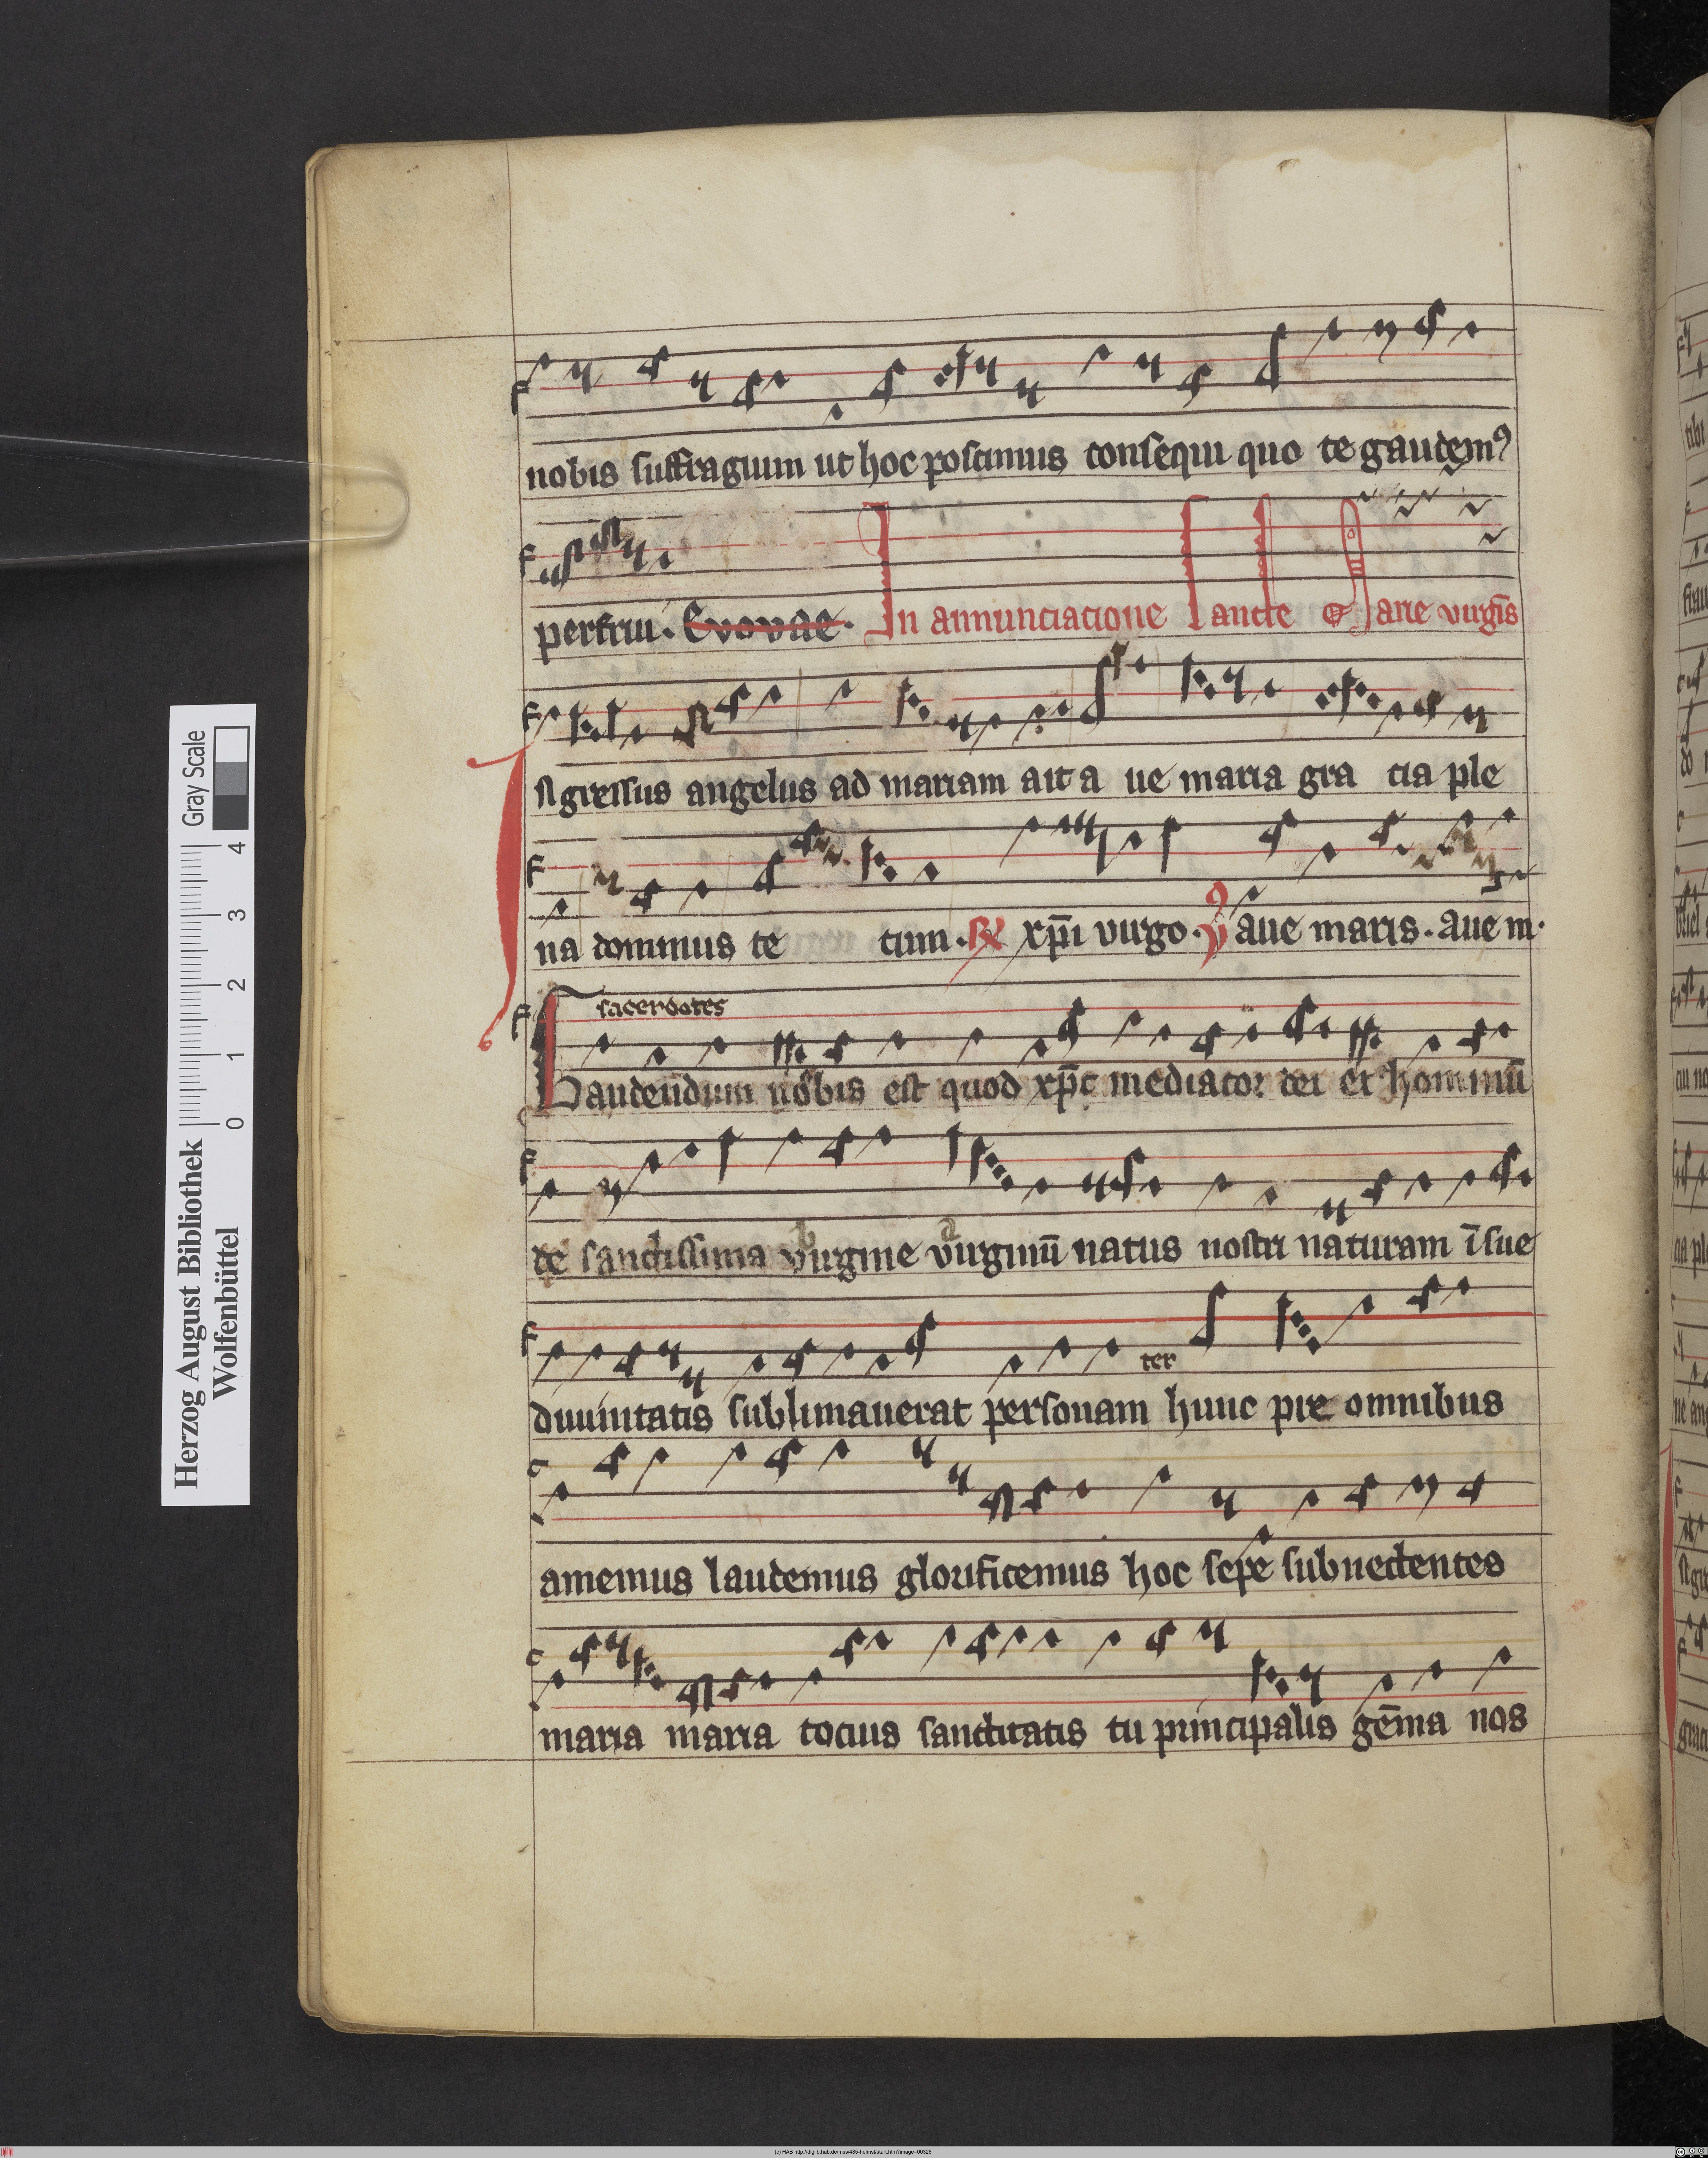 nobis suffragium ut hoc poscimus consequi quo te gaudemꝰ
perfrui. Evovae. In annunciacione Sancte Marie virgīs
Ingressus angelus ad mariam ait a ue maria gra cia ple
na dominus te cum. ℟ xp̄i uirgo. ℣ aue maris. aue m.
sacerdotes
Gaudendum nobis est quod xp̄c mediator dei et hominū
de sanctissima uirgine uirginū natus nostri naturam ī sue
b a
ter
diuinitatis sublimauerat personam hunc pre omnibus
amemus laudemus glorificemus hoc sepe subnectentes
maria maria tocius sanctitatis tu principalis gēma nos
Herzog August Bibliothek
Wolfenbüttel
0 1 2 3 4
Gray Scale
(c) HAB http://diglib.hab.de/mss/485-helmst/start.htm?image=00328